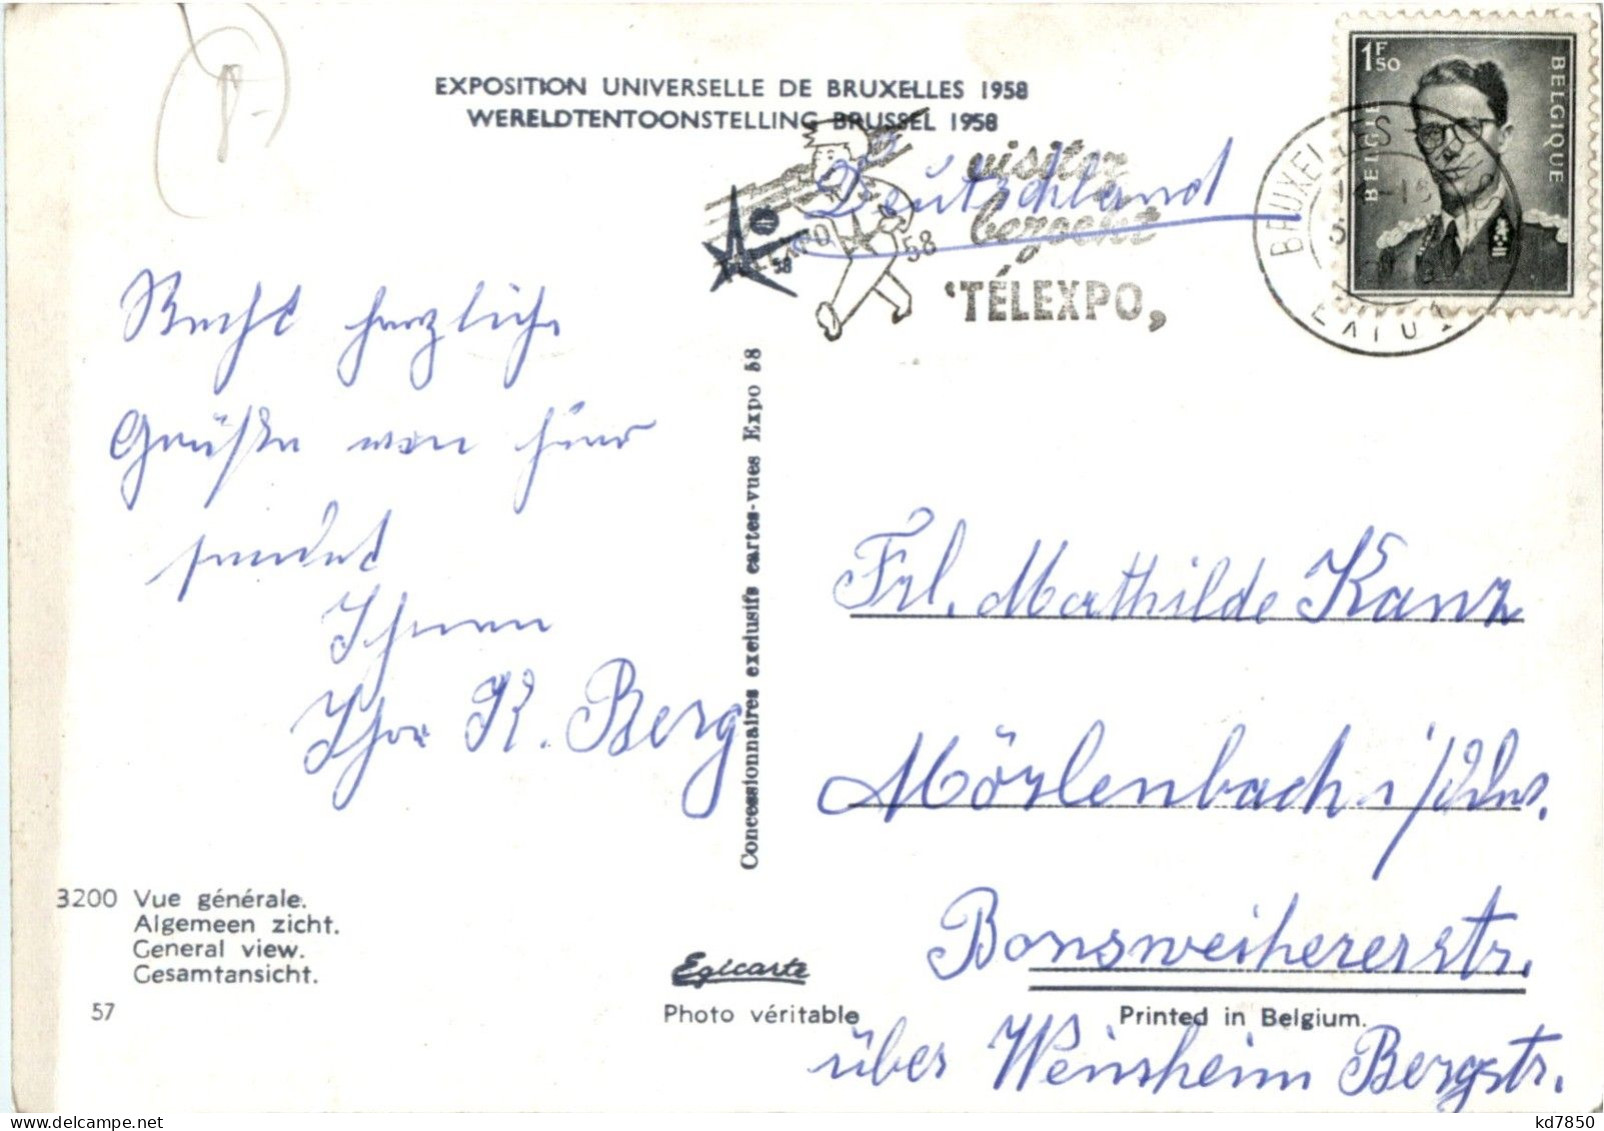 EXPOSITION UNIVERSELLE DE BRUXELLES 1958
WERELDTENTOONSTELLING BRUSSEL 1958
1F50
BELGIE
BELGIQUE
visiter
bezoekt
'TÉLEXPO,
58
58
BRUXELLES
Deutschland
Recht herzliche
Grüße von hier
sendet
Ihnen
Ihr K. Berg
Concessionnaires exclusifs cartes-vues Expo 58
Frl. Mathilde Kanz
Mörlenbach i/Odw.
Bonsweihererstr.
über Weinheim Bergstr.
3200 Vue générale.
Algemeen zicht.
General view.
Gesamtansicht.
57
Egicarte
Photo véritable
Printed in Belgium.
kd7850